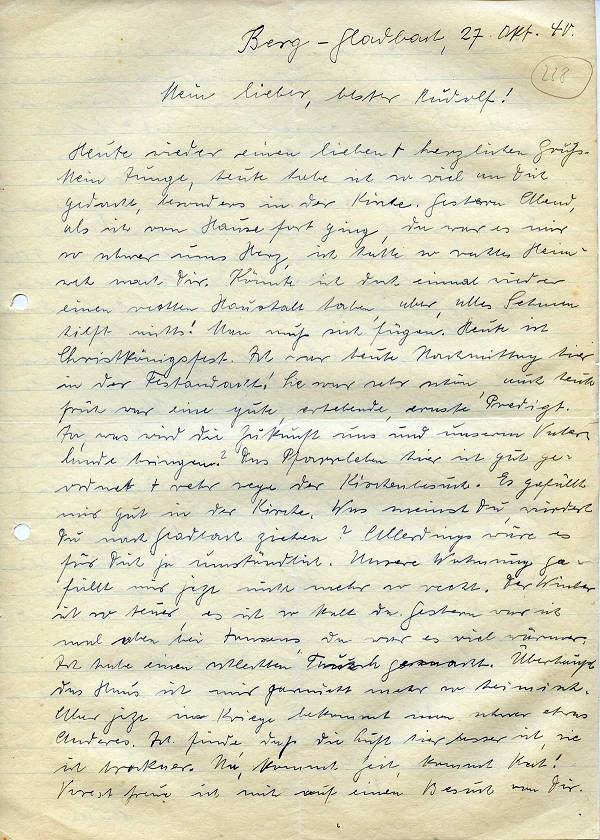 Berg-Gladbach, 27. Okt. 40.
228
Mein lieber, bester Rudolf!
Heute wieder einen lieben + herzlichen Gruß.
Mein Junge, heute habe ich so viel an Dich
gedacht, besonders in der Kirche. Gestern Abend,
als ich von Hause fort ging, da war es mir
so schwer ums Herz, ich hatte so rechtes Heim-
weh nach Dir. Könnte ich doch einmal wieder
einen rechten Haushalt haben, aber, alles Sehnen
hilft nichts! Man muß sich fügen. Heute ist
Christkönigsfest. Ich war heute Nachmittag hier
in der Festandacht! Sie war sehr schön, auch heute
früh war eine gute, erhebende, ernste Predigt.
Ja, was wird die Zukunft uns und unserm Vater-
lande bringen? Das Pfarrleben hier ist gut ge-
ordnet + sehr rege der Kirchenbesuch. Es gefällt
mir gut in der Kirche. Was meinst Du, würdest
Du nach Gladbach ziehen? Allerdings wäre es
für Dich ja umständlich. Unsere Wohnung ge-
fällt mir jetzt nicht mehr so recht. Der Winter
ist so teuer, es ist so kalt da. Gestern war ich
mal oben bei Hansens, da war es viel wärmer.
Ich habe einen schlechten Tausch gemacht. Überhaupt
das Haus ist mir garnicht mehr so heimisch.
Aber jetzt im Kriege bekommt man schwer etwas
Anderes. Ich finde, daß die Luft hier besser ist, sie
ist trockner. Na, kommt Zeit, kommt Rat!
Vorest freue ich mich auf einen Besuch von Dir.